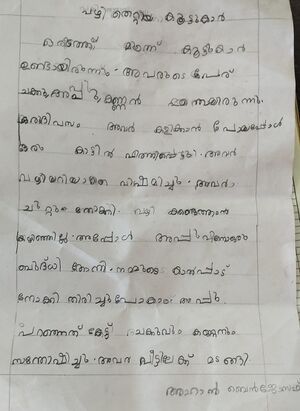 വഴി തെറ്റിയ കൂട്ടുകാർ
ഒരിടത്ത് മൂന്ന് കൂട്ടുകാർ
ഉണ്ടായിരുന്നു. അവരുടെ പേര്
ചക്കു, അപ്പു, കണ്ണൻ എന്നായിരുന്നു.
ഒരുദിവസം അവർ കളിക്കാൻ പോയപ്പോൾ
ഒരു കാട്ടിൽ എത്തിപ്പെട്ടു. അവർ
വഴിയറിയാതെ വിഷമിച്ചു. അവർ
ചുറ്റും നോക്കി. വഴി കണ്ടെത്താൻ
കഴിഞ്ഞില്ല. അപ്പോൾ അപ്പുവിനൊരു
ബുദ്ധി തോന്നി. നമ്മുടെ കാൽപ്പാട്
നോക്കി തിരിച്ചുപോകാം. അപ്പു
പറഞ്ഞത് കേട്ട് ചക്കുവും കണ്ണനും
സന്തോഷിച്ചു. അവർ വീട്ടിലേക്ക് മടങ്ങി.
അഹാൻ ബെൻജോസഫ്